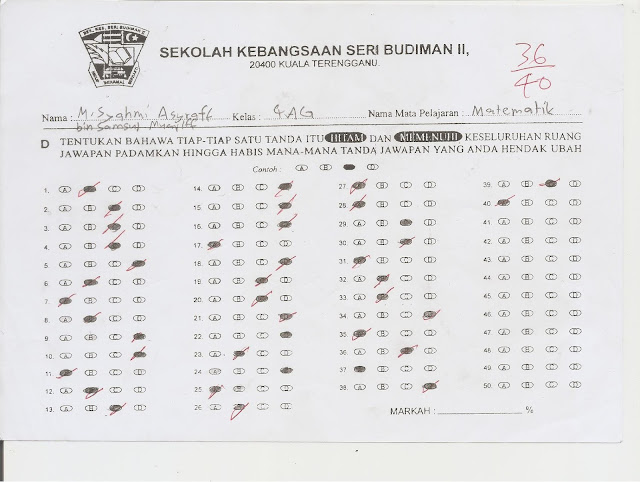 SK. KEB. SERI BUDIMAN II
SEKOLAH KEBANGSAAN SERI BUDIMAN II,
20400 KUALA TERENGGANU.
36
40
Nama : M. Syahmi Asyraff Kelas : 4AG Nama Mata Pelajaran : Matematik
bin Samsul
D TENTUKAN BAHAWA TIAP-TIAP SATU TANDA ITU HITAM DAN MEMENUHI KESELURUHAN RUANG
JAWAPAN PADAMKAN HINGGA HABIS MANA-MANA TANDA JAWAPAN YANG ANDA HENDAK UBAH
Contoh : A B D
1. A C D
2. A B D
3. A B D
4. A B D
5. A B C
6. A C D
7. B C D
8. A C D
9. A B C
10. A B C
11. B C D
12. A C D
13. A B D
14. A B C
15. A B C
16. A B C
17. B C D
18. A B C
19. A B D
20. A B D
21. A B C
22. A B C
23. A C D
24. A B C
25. C D
26. A C D
27. B C D
28. B C D
29. A B D
30. A B D
31. B C D
32. A C D
33. A C D
34. A B C
35. B C D
36. A B D
37. B C D
38. A B C
39. A B D
40. B C D
41. A B C D
42. A B C D
43. A B C D
44. A B C D
45. A B C D
46. A B C D
47. A B C D
48. A B C D
49. A B C D
50. A B C D
MARKAH : %